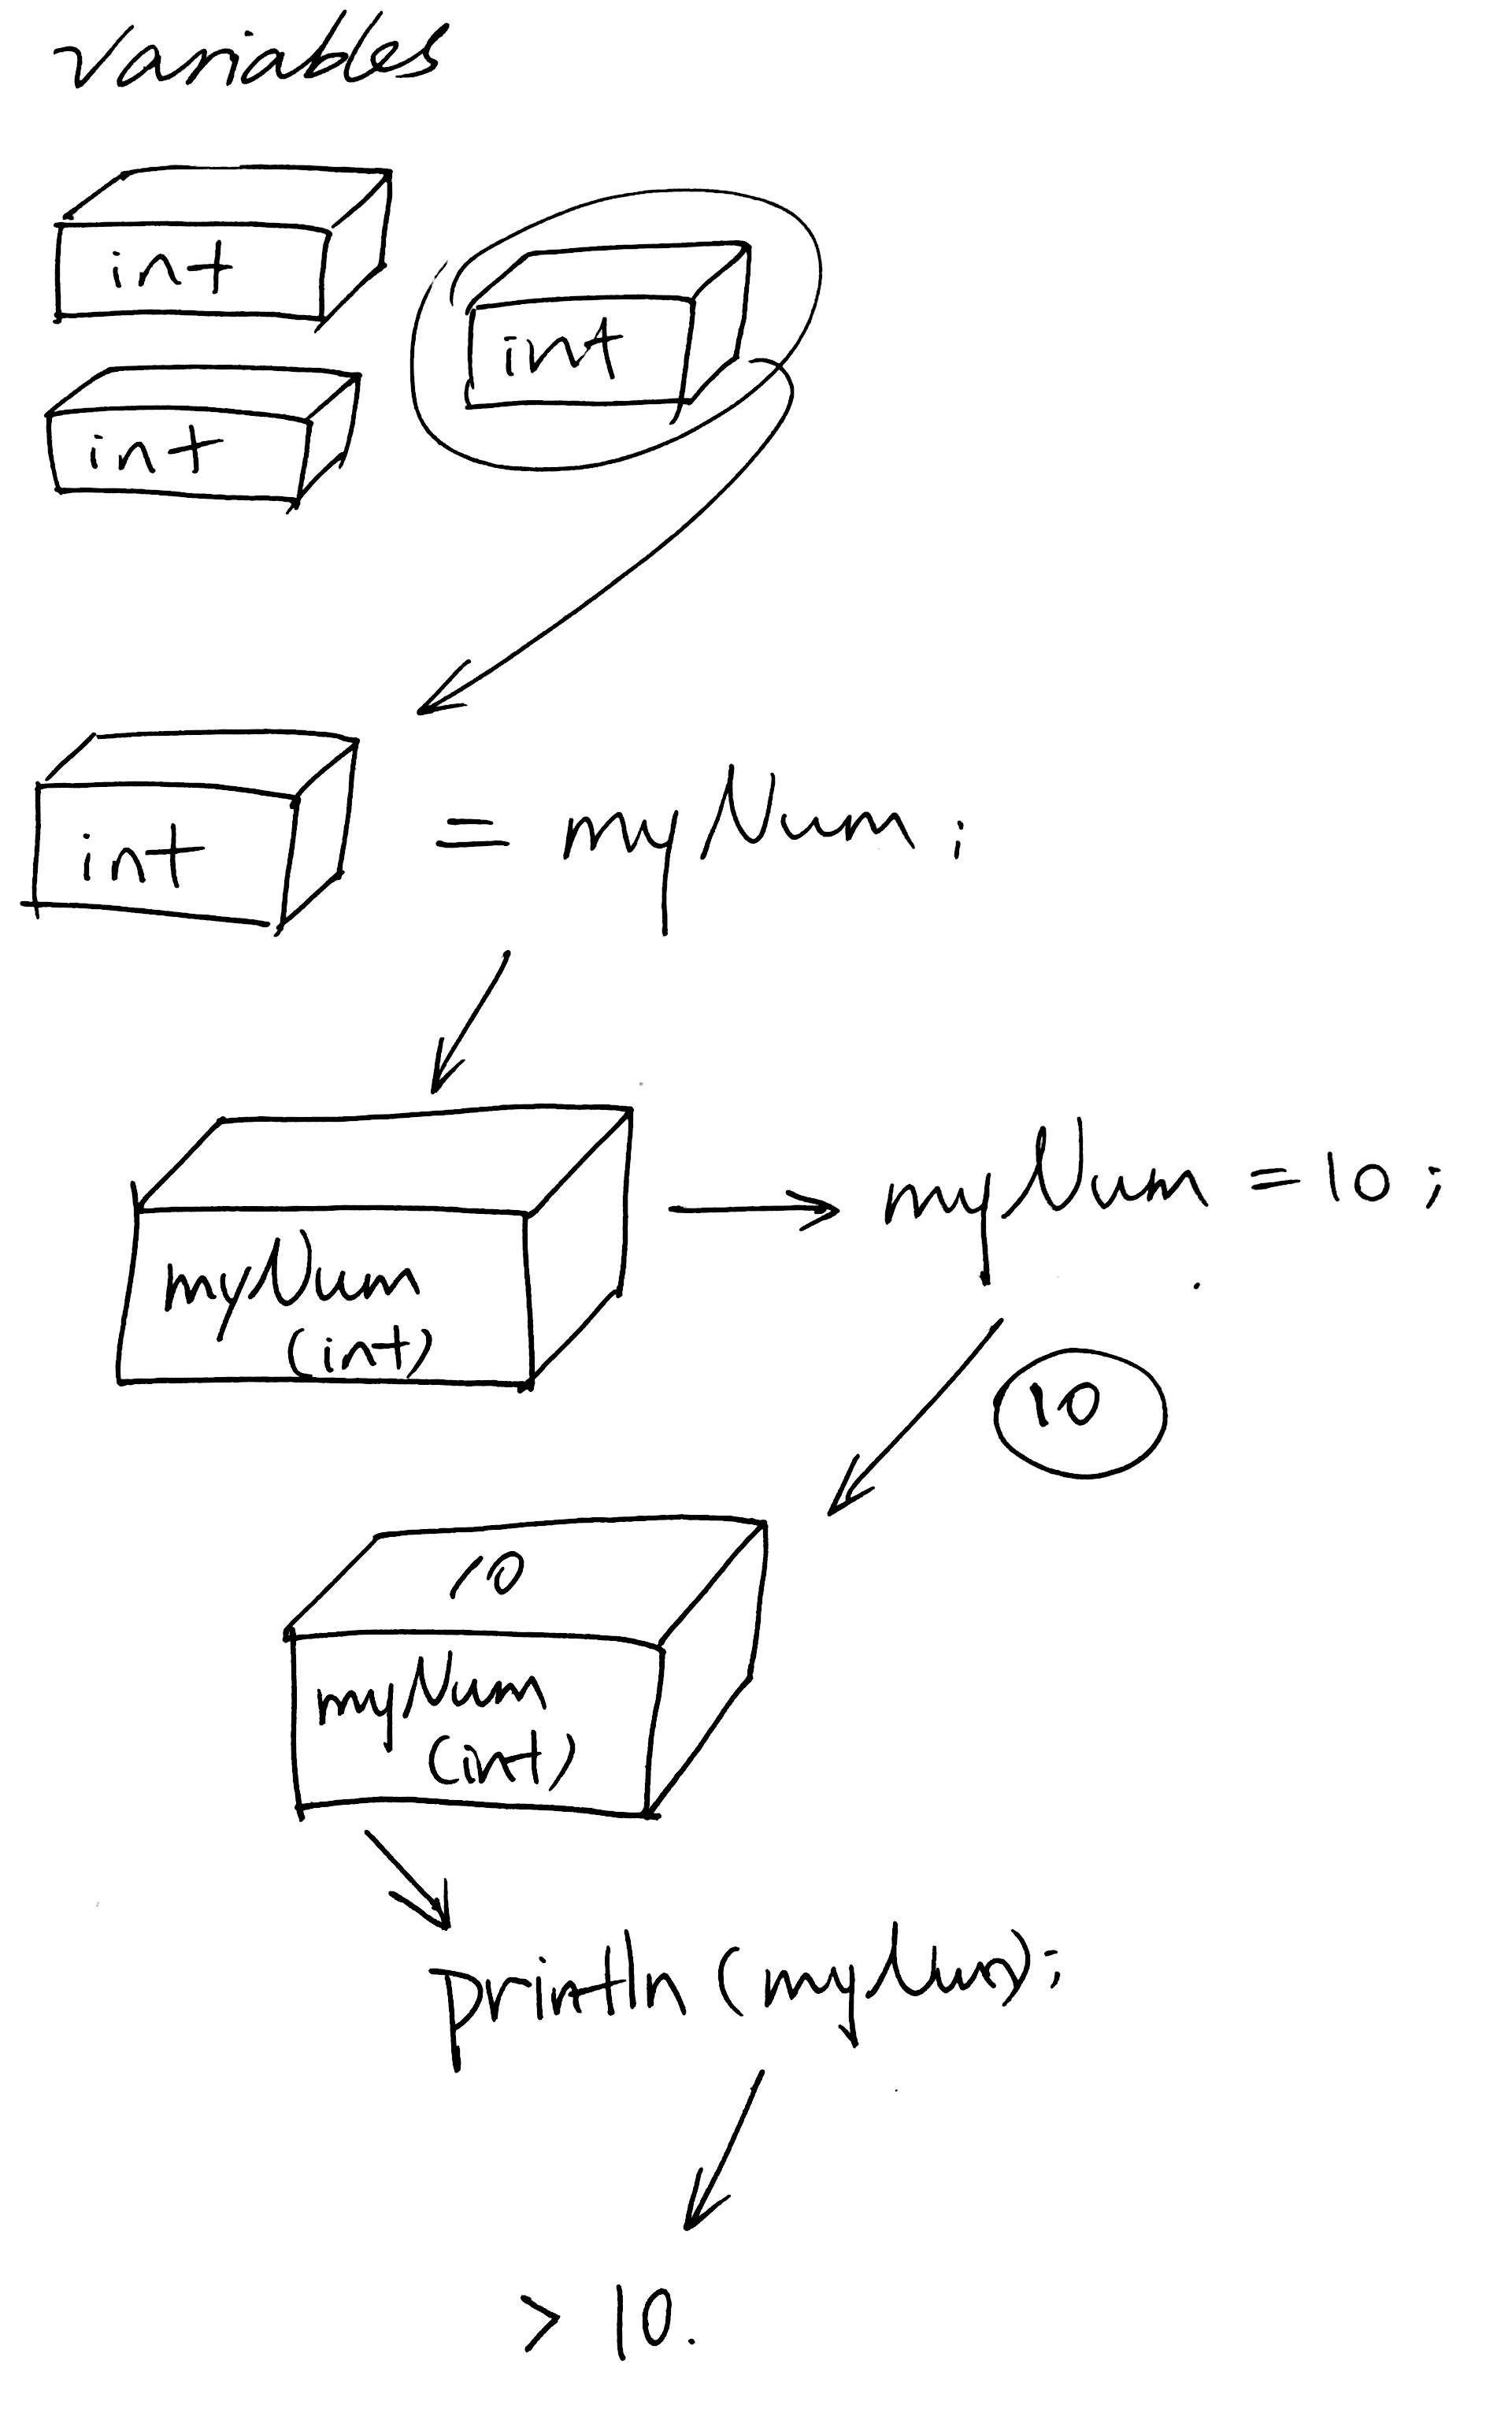 Variables
int
int
int
int
= myNum ;
myNum
(int)
myNum = 10 ;
10
10
myNum
(int)
println (myNum);
> 10.